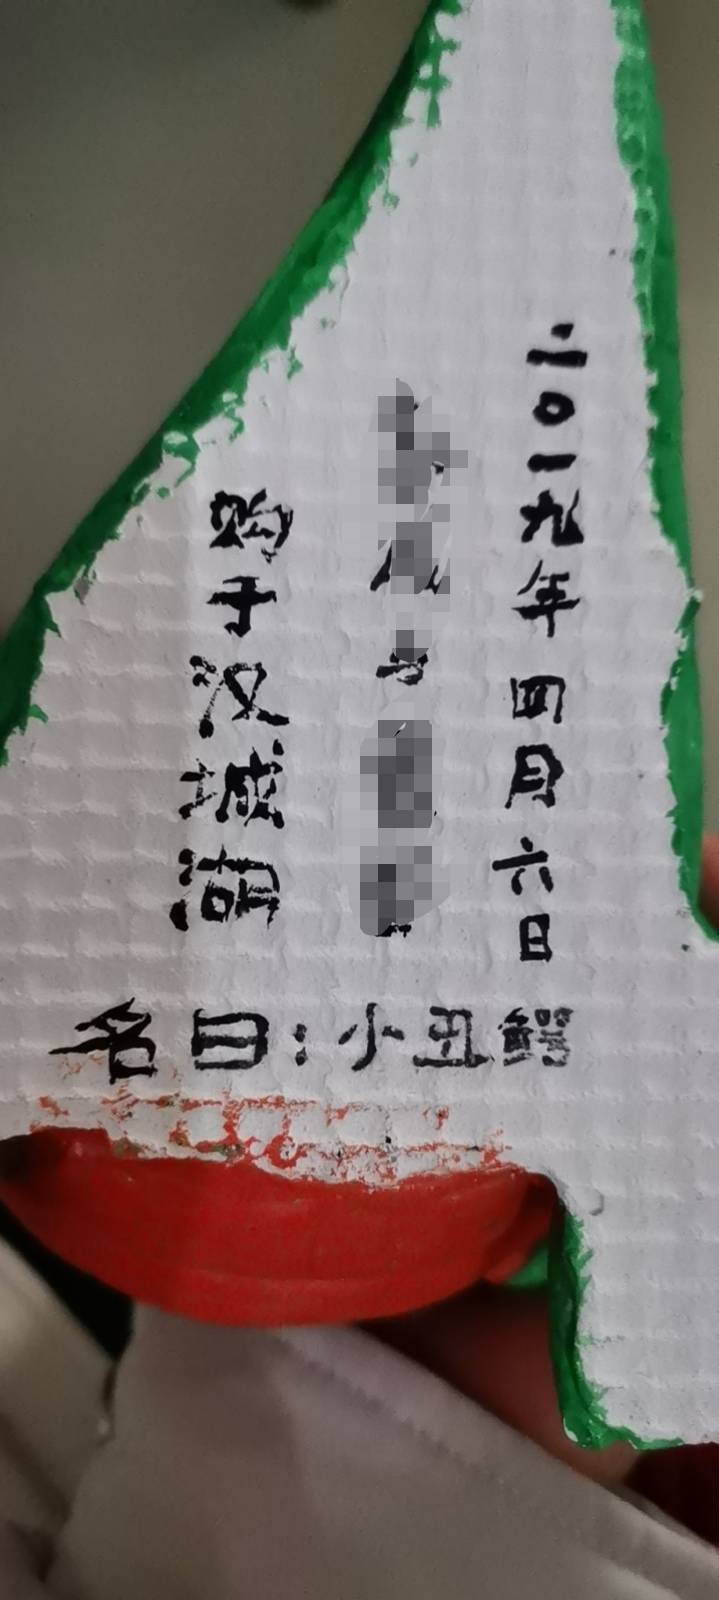 二〇一九年四月六日
与
购于汉城湖
名曰:小丑鳄